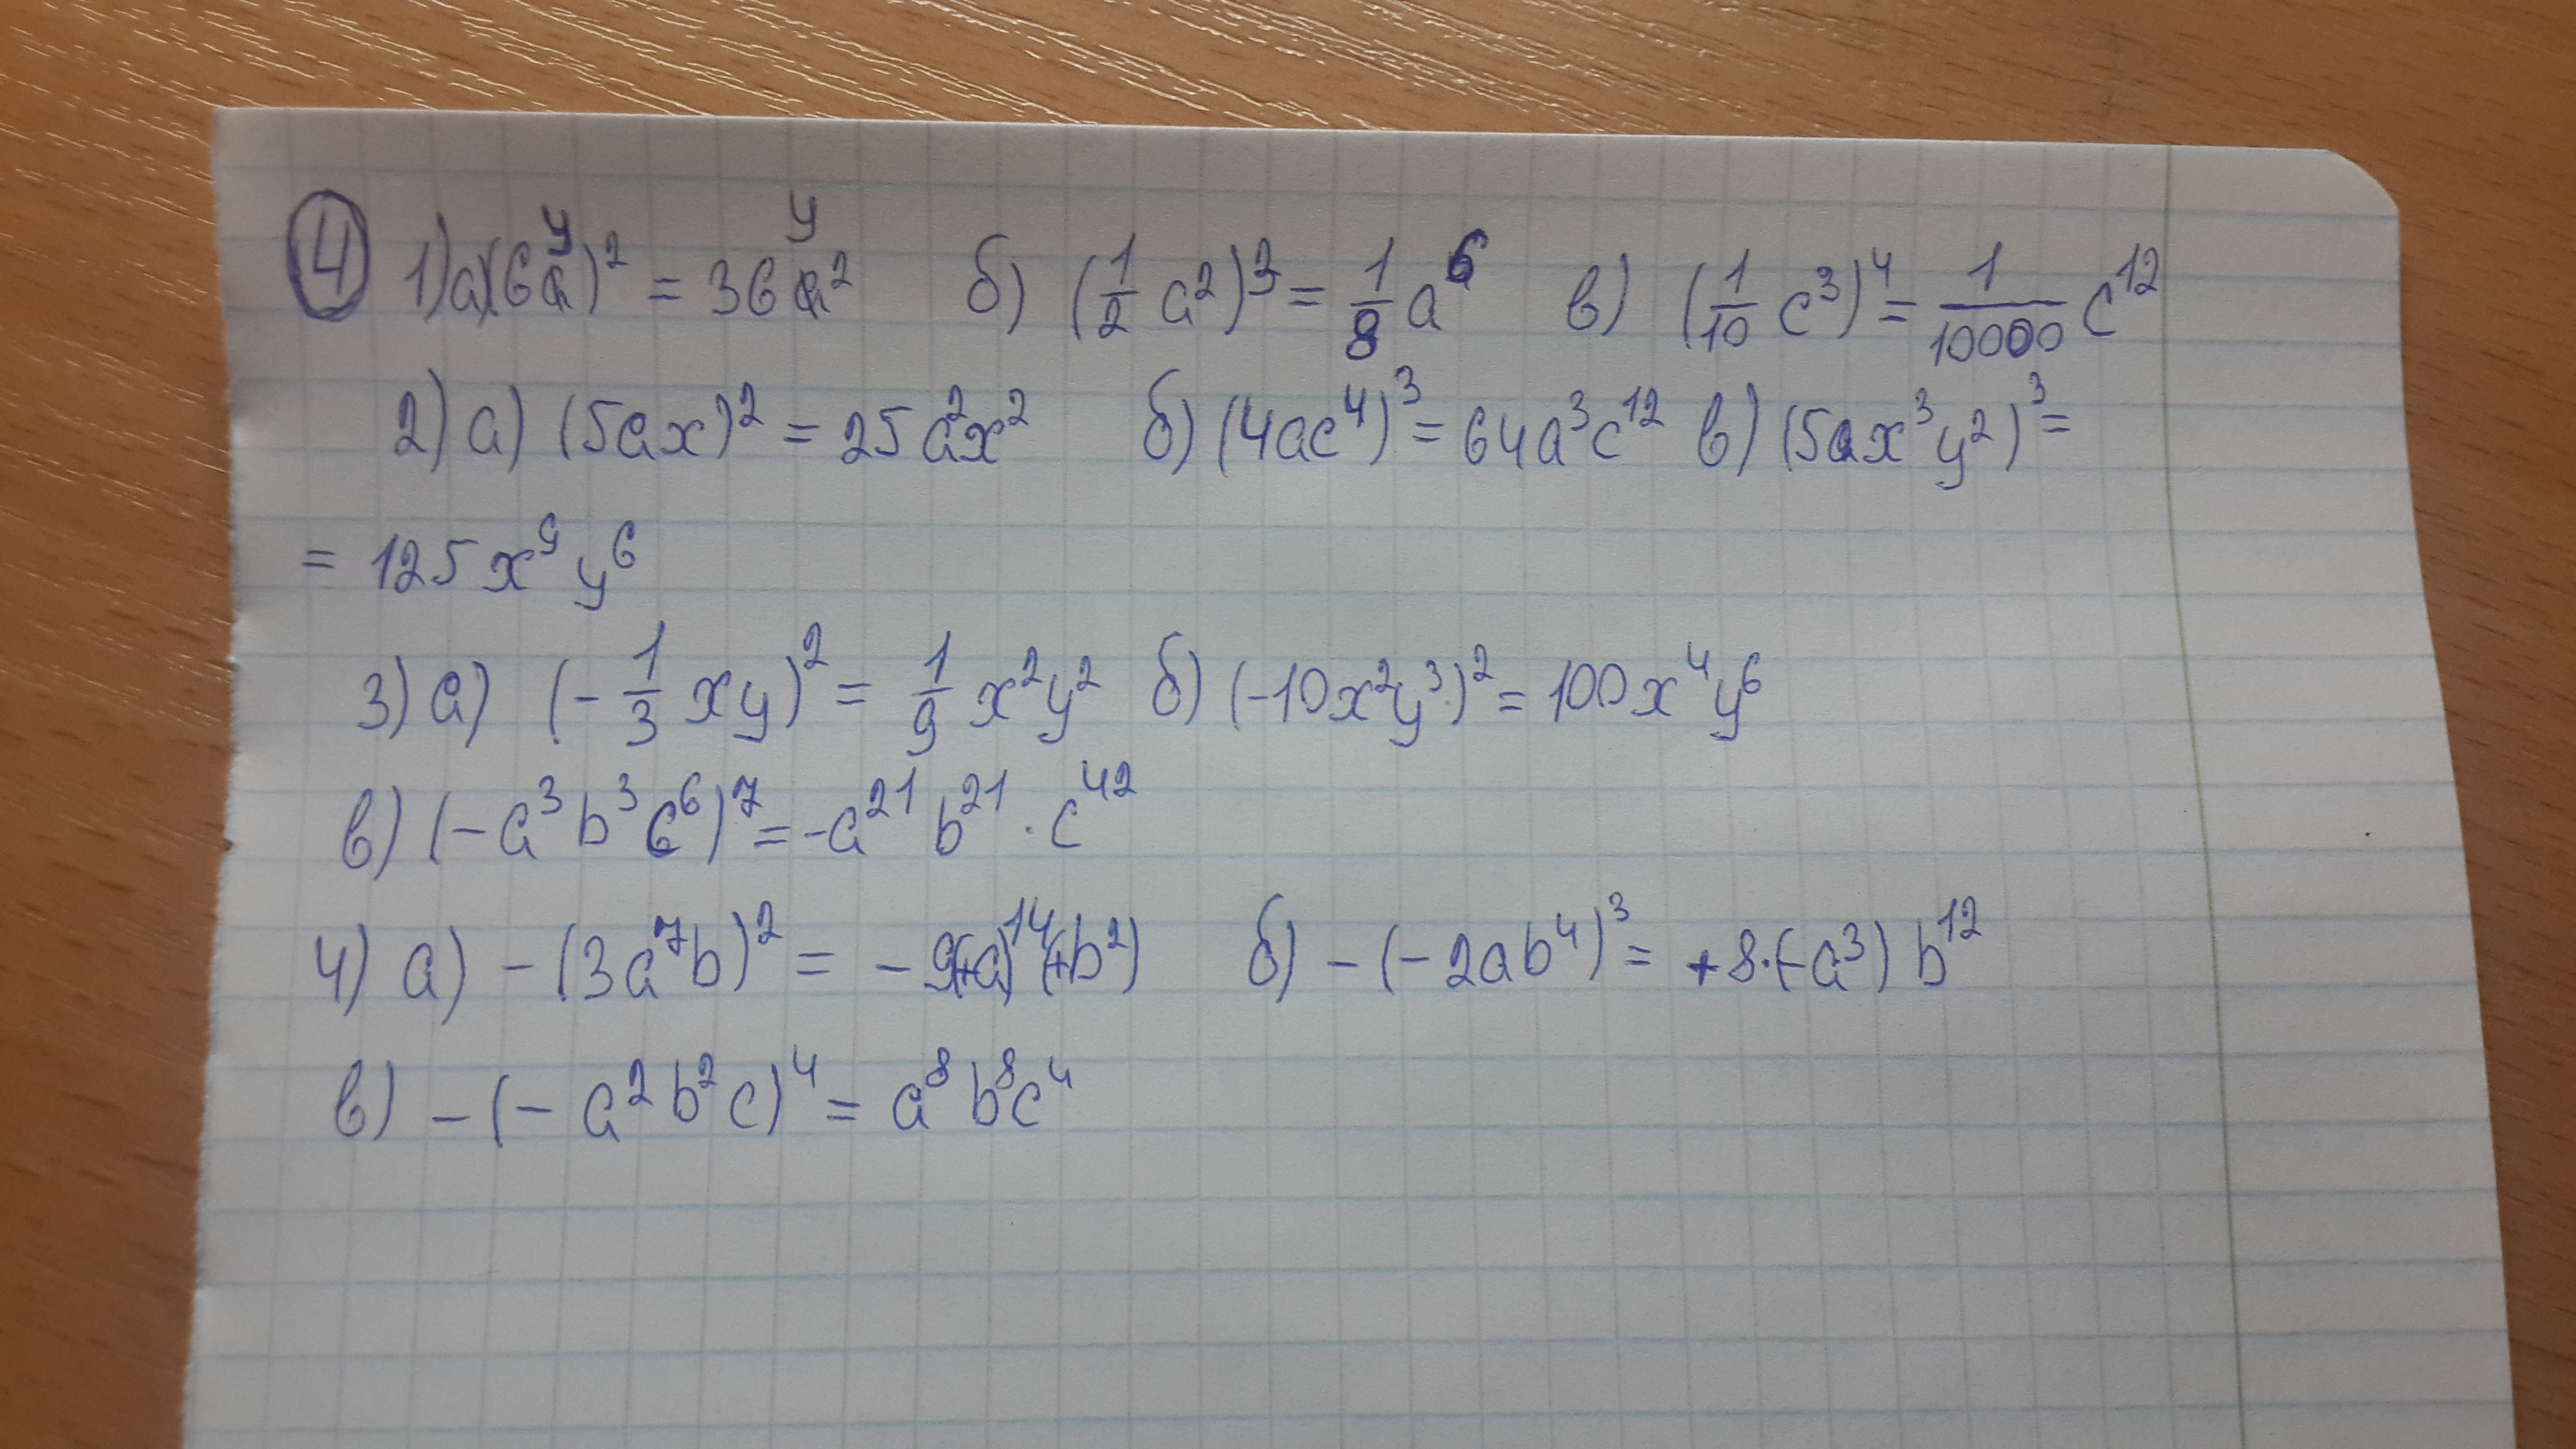 4 1) а) (6y)² = 36y² б) (1/2 a²)³ = 1/8 a⁶ в) (1/10 c³)⁴ = 1/10000 c¹²
2) а) (5ax)² = 25a²x² б) (4ac⁴)³ = 64a³c¹² в) (5ax³y²)³ =
= 125x⁹y⁶
3) а) (-1/3 xy)² = 1/9 x²y² б) (-10x²y³)² = 100x⁴y⁶
в) (-a³b³c⁶)⁷ = -a²¹b²¹·c⁴²
4) а) -(3a⁷b)² = -9(+a)¹⁴(+b²) б) -(-2ab⁴)³ = +8·(-a³)b¹²
в) -(-a²b²c)⁴ = a⁸b⁸c⁴